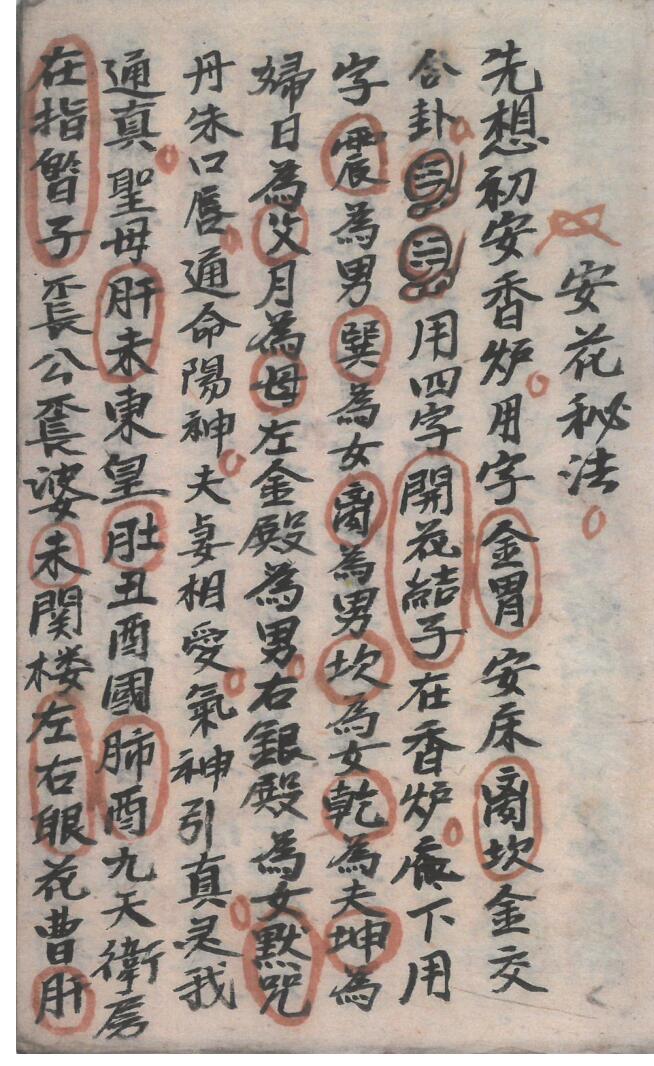 安花秘法
先想初安香炉用字金胃安床离坎金交
合卦用四字開花結子在香炉底下用
字震為男巽為女离為男坎為女乾為夫坤為
婦日為父月為母左金殿為男右銀殿為女默咒
丹朱口唇通命陽神夫妻相愛氣神引真灵我
通真聖母肝未東皇肚丑酉國肺酉九天衛房
在指子公婆未関楼左右眼花曹肝